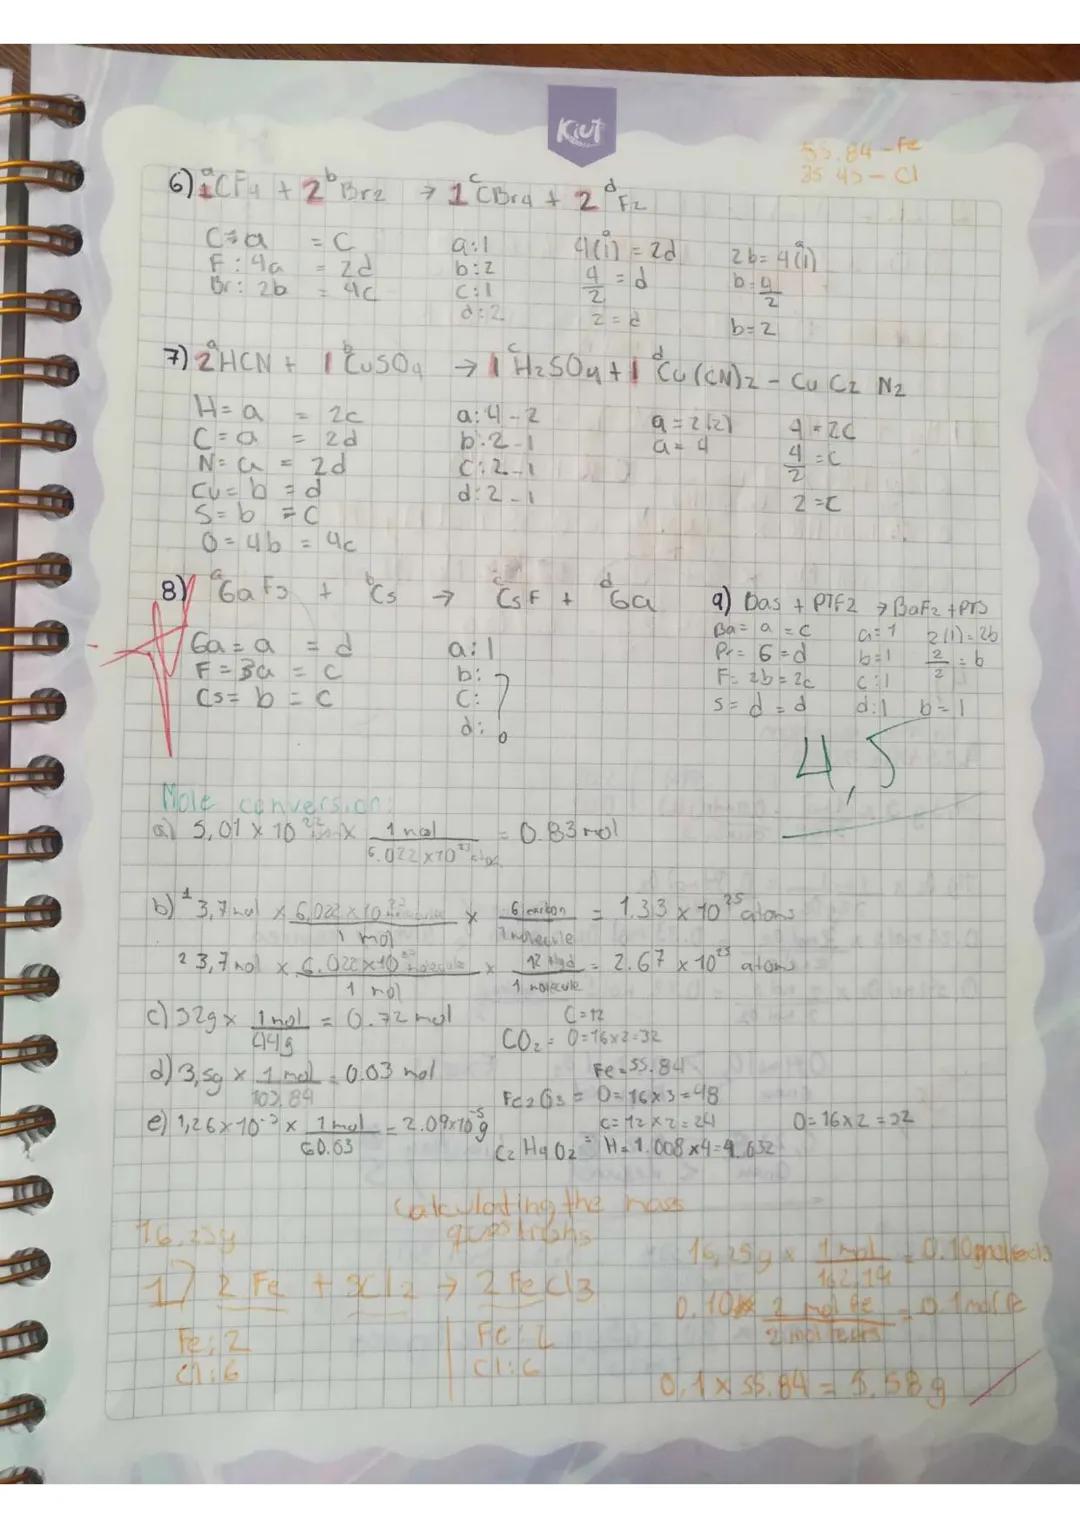 Kiut
55.84 - Fe
35.45 - Cl
6) 1CF4 + 2 Br2 → 1 CBr4 + 2 F2
a b c d
C = a = c
F: 4a = 2d
Br: 2b = 4c
a: 1
b: 2
c: 1
d: 2
4(1) = 2d
4/2 = d
2 = d
2b = 4(1)
b = 4/2
b = 2
7) 2HCN + 1 CuSO4 → 1 H2SO4 + 1 Cu(CN)2 - Cu C2 N2
a b c d
H = a = 2c
C = a = 2d
N = a = 2d
Cu = b = d
S = b = c
O = 4b = 4c
a: 4 - 2
b: 2 - 1
c: 2 - 1
d: 2 - 1
a = 2(2)
a = 4
4 = 2c
4/2 = c
2 = c
8) GaF3 + Cs → CsF + Ga
a b c d
Ga = a = d
F = 3a = c
Cs = b = c
a: 1
b:
c: ?
d:
9) BaS + PTF2 → BaF2 + PTS
Ba = a = c
Pr = b = d
F = 2b = 2c
S = d = d
a = 1
b = 1
c: 1
d: 1
2(1) = 2b
2/2 = b
b = 1
4,5
Mole conversion:
a) 5,01 x 10 x 1 mol / 6.022 x 10^23 = 0.83 mol
b) 1 3,7 mol x 6,022 x 10^23 / 1 mol x 6 carbon / 1 molecule = 1.33 x 10^25 atoms
2 3,7 mol x 6.022 x 10^23 molecule / 1 mol x 12 / 1 molecule = 2.67 x 10^25 atoms
c) 32g x 1 mol / 44g = 0.72 mol
C = 12
CO2 = O = 16 x 2 = 32
d) 3,5g x 1 mol / 103.84 = 0.03 mol
Fe = 55.84
Fe2O3 = O = 16 x 3 = 48
e) 1,26 x 10^-3 x 1 mol / 60.03 = 2.09 x 10^-5 g
C = 12 x 2 = 24
O = 16 x 2 = 32
C2H4O2 = H = 1.008 x 4 = 4.032
Calculating the mass
questions
16.25g
1) 2 Fe + 3Cl2 → 2 FeCl3
Fe: 2
Cl: 6
Fe: 2
Cl: 6
16,25g x 1 mol / 162.19 = 0.10 mol FeCl3
0.10 x 2 mol Fe / 2 mol FeCl3 = 0.1 mol Fe
0,1 x 55.84 = 5.58 g